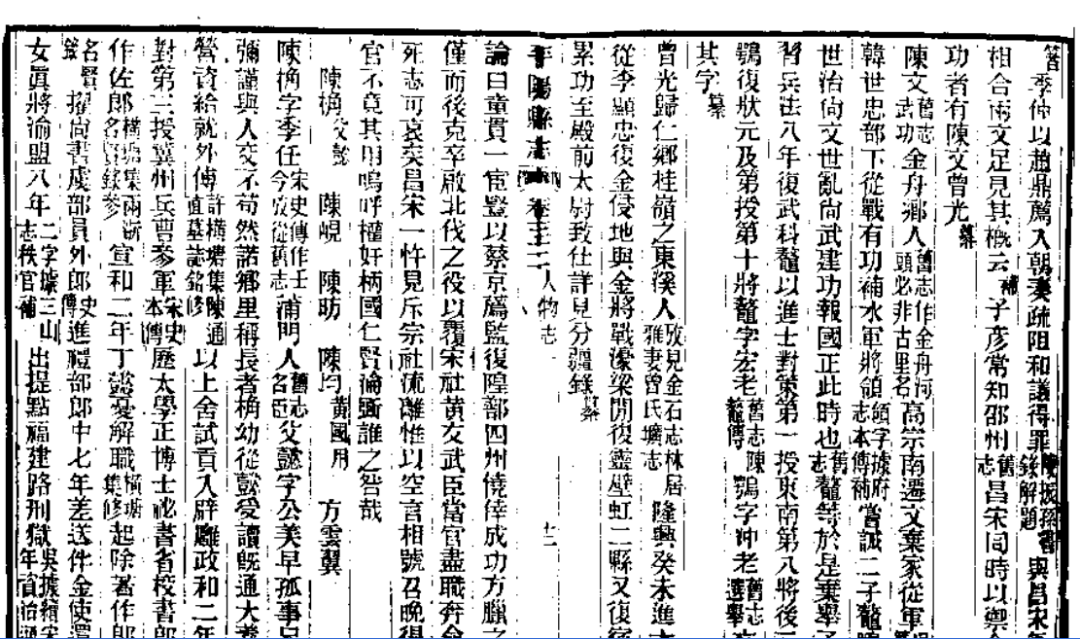 季仲以趙鼎薦入朝妻疏阻和議得罪陳振孫書錄解題與昌宋
相合兩文足見其概云補子彥常知邵州舊志昌宋同時以禦
功者有陳文曾光纂
陳文舊志武功金舟鄉人舊志作金舟河頭必非古里名高宗南遷文棄家從軍
韓世忠部下從戰有功補水軍將領領字據府志本傳補嘗誡二子鼇鶚
世治尚文世亂尚武建功報國正此時也舊志鼇等於是棄舉子
習兵法八年復武科鼇以進士對策第一授東南第八將後三
鶚復狀元及第授第十將鼇字宏老舊志陳鼇傳鶚字沖老舊志選舉
其字纂
曾光歸仁鄉桂嶺之東溪人攷見金石志林居雅妻曾氏壙志隆興癸未進士
從李顯忠復金侵地與金將戰濠梁開復靈壁虹二縣又復宿
累功至殿前太尉致仕詳見分疆錄纂
平陽縣志 卷三十二 人物志 十二
論曰童貫一宦豎以蔡京薦監復隍鄯四州僥倖成功方臘之
僅而後克卒啟北伐之役以覆宋社黃友武臣當官盡職奔命
死志可哀矣昌宋一忤見斥宗社流離惟以空言相號召晚得
官不竟其用嗚呼權奸柄國仁賢淪斲誰之咎哉
陳桷父懿 陳峴 陳昉 陳均黃國用 方雲翼
陳桷字季任宋史傳作任今攷從舊志蒲門人舊志名亞父懿字公美早孤事兄
彌謹與人交不苟然諾鄉里稱長者桷幼從懿受讀旣通大義
營資給就外傅許橫塘集陳通直墓誌銘修以上舍試貢入辟雝政和二年
對第三授冀州兵曹參軍宋史本傳歷太學正博士祕書省校書郎
作佐郎橫塘集兩浙名賢錄參宣和二年丁懿憂解職橫塘集修起除著作郎
名賢錄擢尚書虞部員外郎史傳進禮部郎中七年差送伴金使還
女眞將渝盟八年二字據三山志秩官補出提點福建路刑獄